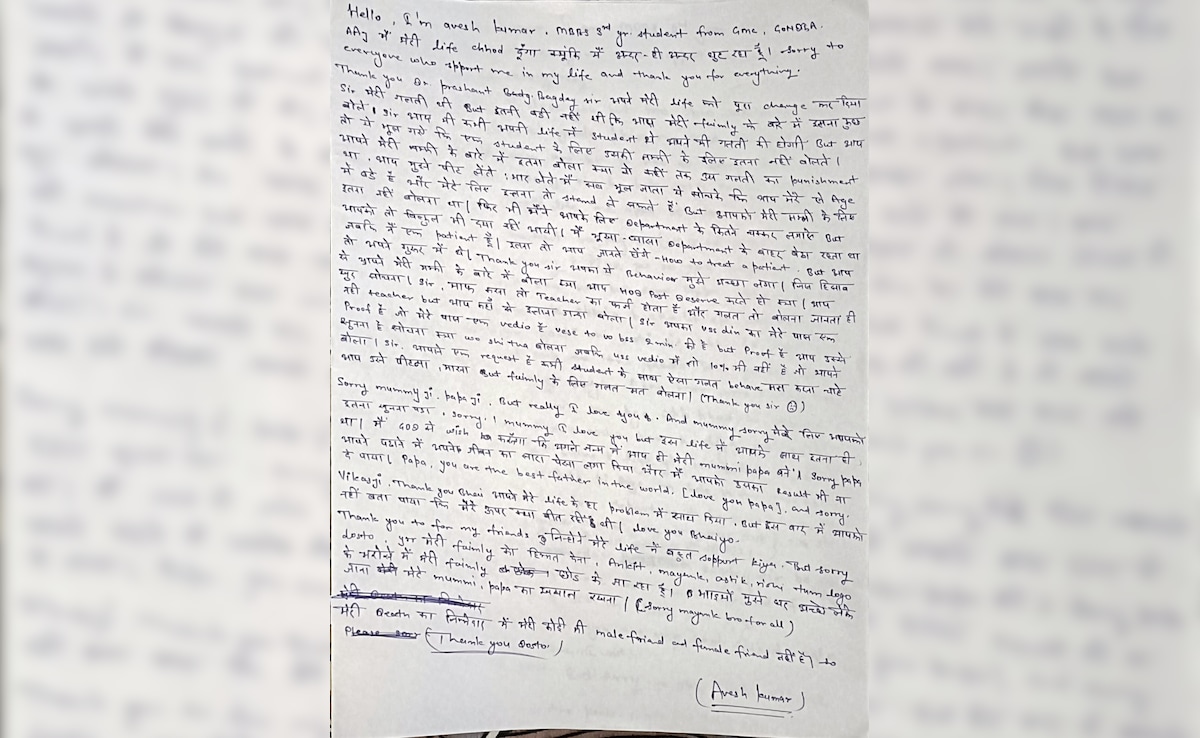 Hello, I'm avesh kumar. MBBS 3rd yr. student from GMC, GONDIA.
AAj मैं मेरी life chhod दूँगा क्यूंकि मैं अन्दर-ही अन्दर घुट रहा हूँ। sorry to
everyone who spport me in my life and thank you for everything.
Thank you Dr. prashant Bagday sir आपने मेरी life को पूरा change कर दिया
Sir मेरी गलती थी But इतनी बडी नहीं थी कि आप मेरी faimly के बारे में इतना कुछ
बोले। Sir आप भी कभी अपनी life में student थे आपने भी गलती की होगी But आप
तो ये भूल गये कि एक student के लिए उसकी मम्मी के लिए इतना नहीं बोलते।
आपने मेरी मम्मी के बारे में इतना बोला क्या ये सही था उस गलती का punishment
था. आप मुझे पीट लेते, मार लेते मैं सब भूल जाता ये सोचके कि आप मेरे से Age
में बडे है और मेरे लिए इतना तो stand ले सकते हैं But आपको मेरी मम्मी के लिए
इतना नहीं बोलना था। फिर भी मैंने आपके लिए Department के कितने चक्कर लगाए But
आपको तो बिल्कुल भी दया नहीं आयी। मैं भूखा-प्यासा Department के बाहर बैठा रहता था
जबकि में एक patient हूँ। इतना तो आप जानते होंगे - How to treat a patient. But आप
तो अपने गुरूर में थे। Thank you sir आपका ये Behavior मुझे अच्छा लगा। जिस हिसाब
से आपने मेरी मम्मी के बारे में बोला क्या आप HOD Post Deserve करते हो क्या। आप
खुद सोचना। Sir, माफ करना तो Teacher का फर्ज होता है और गलत तो बोलना जानता ही
नहीं teacher but आप वहाँ के इतना गन्दा बोला। Sir आपका uss din का मेरे पास एक
Proof है जो मेरे पास एक vedio है vese to wo bss 2 min की है but Proof है आप उसमे
सुनना है सोचना क्या wo shi tha बोलना जबकि uss vedio में तो 10% भी नहीं है जो आपने
बोला। Sir. आपसे एक request है कभी student के साथ ऐसा गलत behave मत करना चाहे
आप उसे पीटना, मारना But faimly के लिए गलत मत बोलना। (Thank you sir ☹)
Sorry mummy ji. papa ji. But really I love you. And mummy sorry मेरे लिए आपको
इतना सुनना पडा, sorry. I mummy I love you but इस life में आपके साथ इतना ही
था। मैं GOD से wish करूँगा कि अगले जन्म में आप ही मेरी mummi papa बने। Sorry papa
आपने पढाने में अपनके जीवन का सारा पैसा लगा दिया और मैं आपको उसका Result भी ना
दे पाया। Papa, you are the best father in the world. [I love you papa]. and sorry.
Vikasji. Thank you Bhai आपने मेरे life के हर problem में साथ दिया. But इस बार में आपको
नहीं बता पाया कि मेरे ऊपर क्या बीत रही थी। love you Bhaiyo.
Thank you to for my friends जिन्होंने मेरे life में बहुत support kiya. But sorry
dosto, yrr मेरी faimly को हिम्मत देना. Ankit, mayank, astik, rishu tum logo
के भरोसे में मेरी faimly छोड के जा रहा हूँ। भाइयों मुझे घर अच्छे लेके
जाना मेरे mummi, papa का ख्याल रखना। (Sorry mayank bro for all)
मेरी Death का जिम्मेदार में मेरी कोई भी male friend and female friend नहीं है। so
Please sorr (Thank you Dosto)
(Avesh kumar)